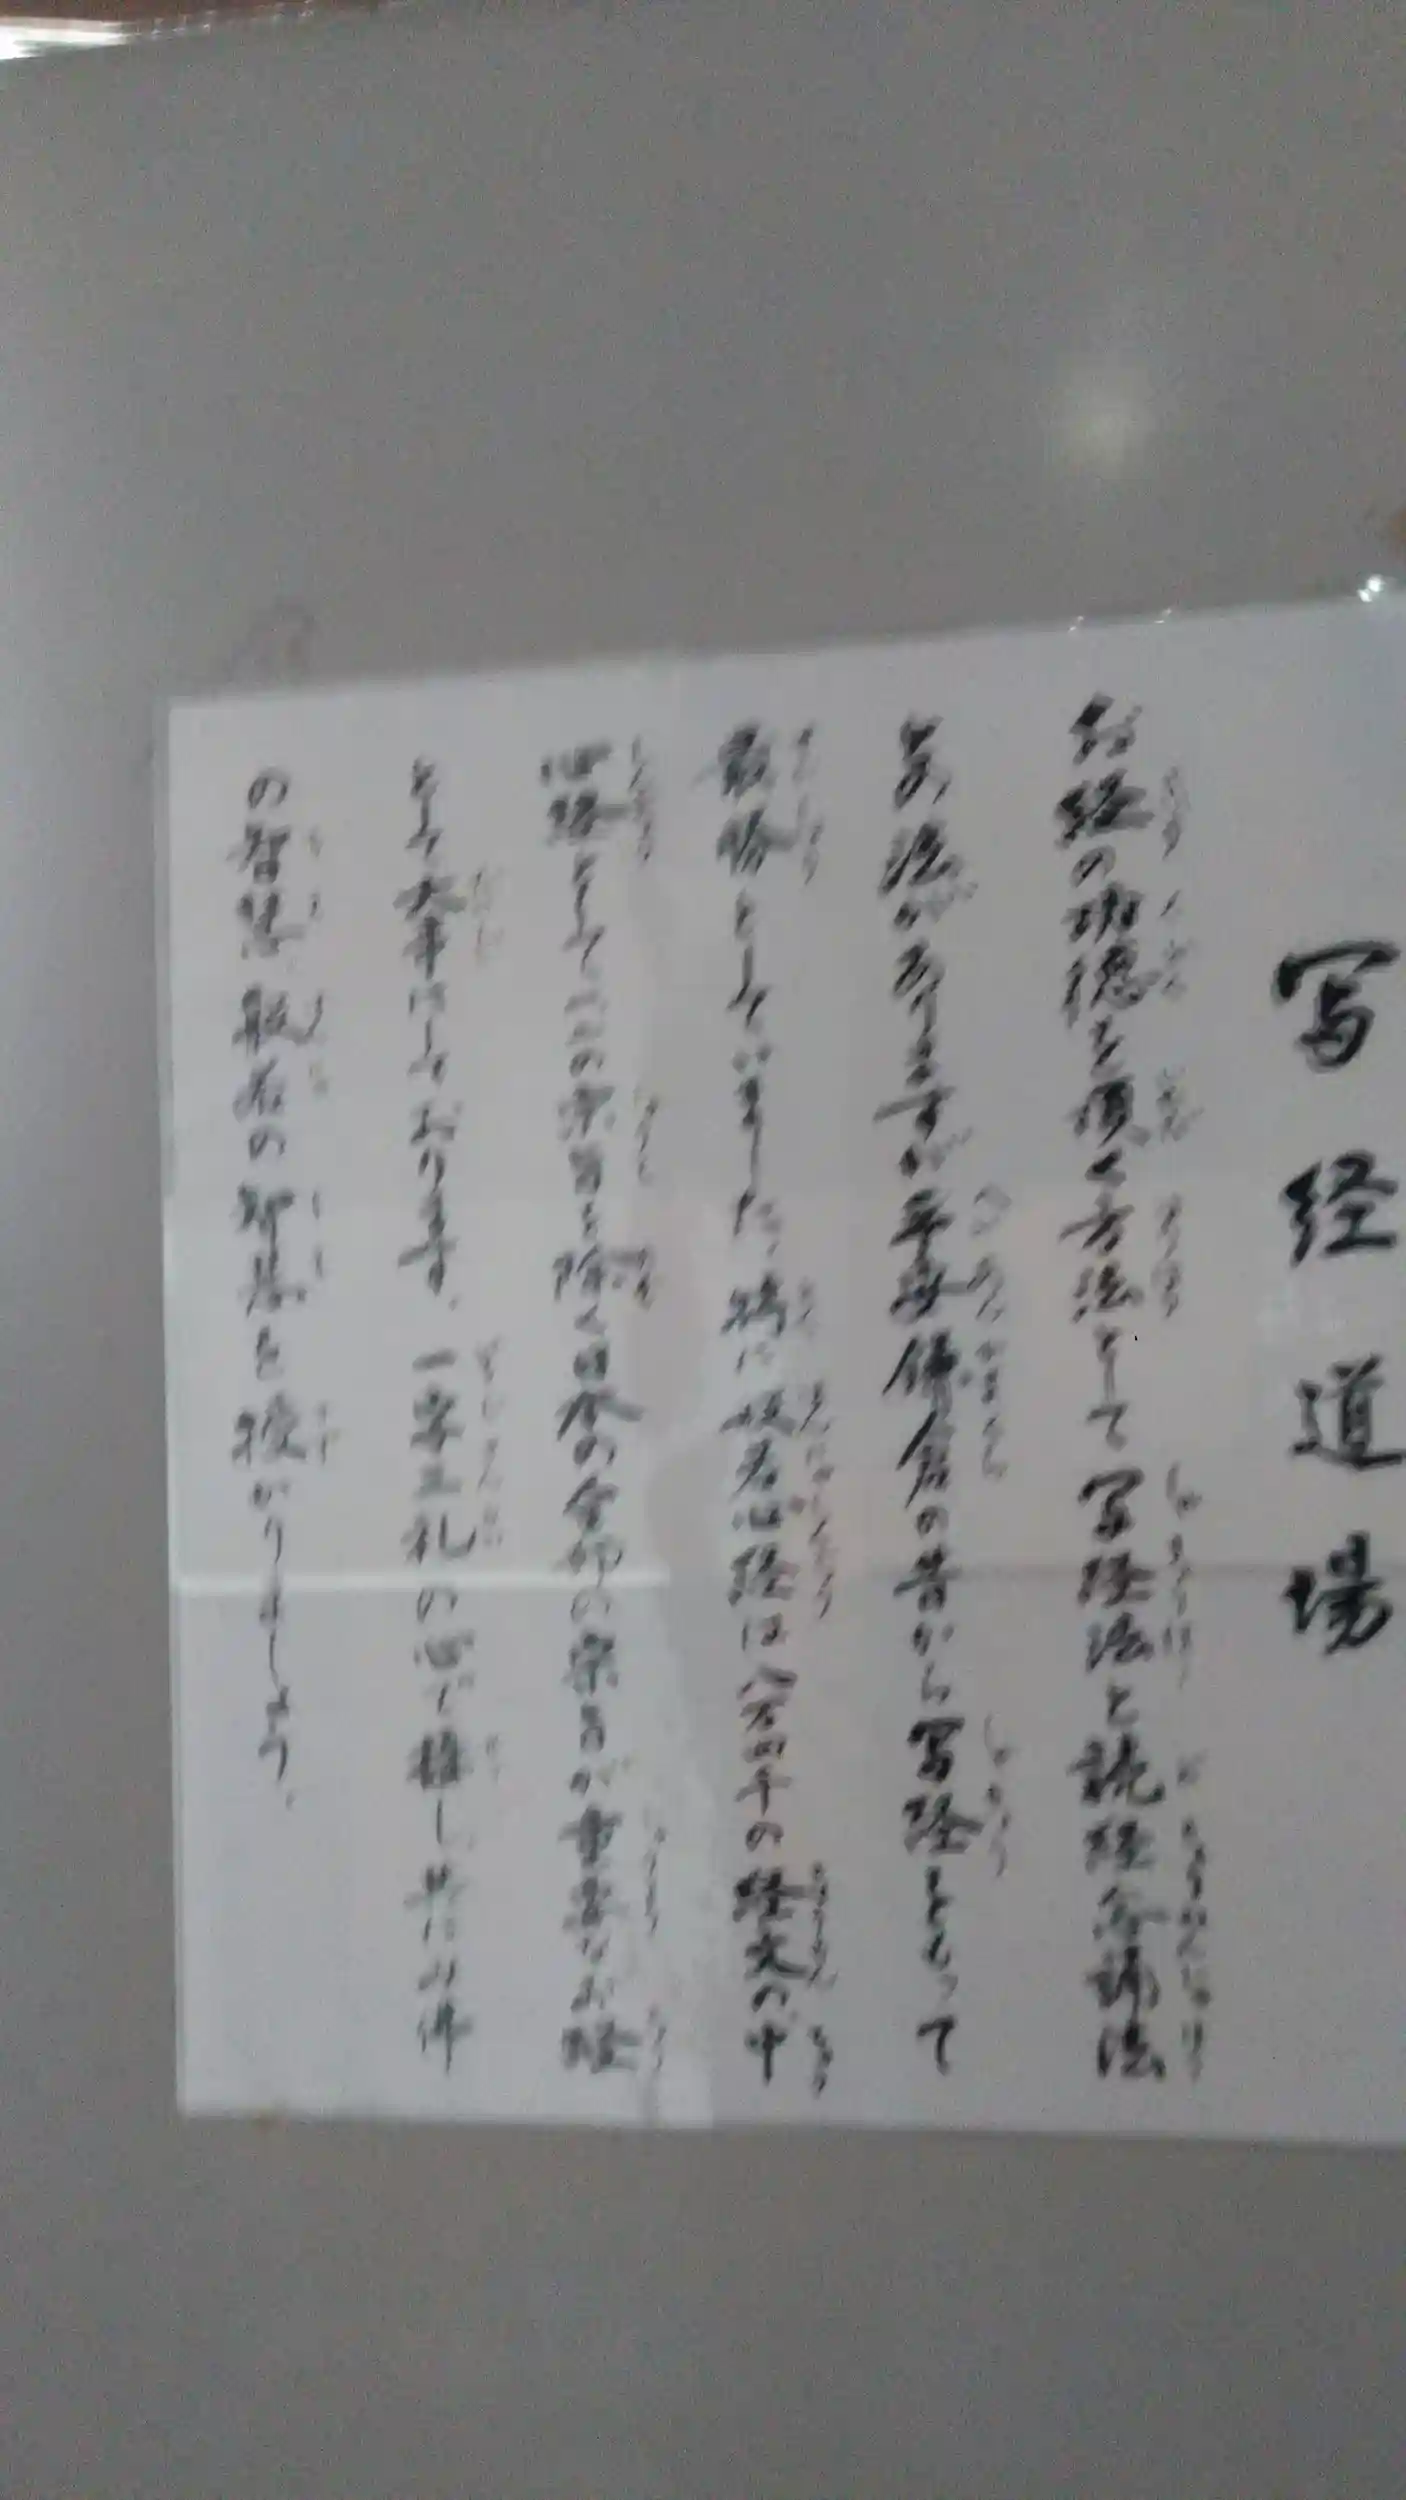 写経道場
お経の功徳を頂く方法として写経法と読経念誦法
との法がありますが平安鎌倉の昔から写経をもって
最勝としていました。特に般若心経は八万四千の経文の中
心経として一二の宗旨を除く日本の全部の宗旨が重要なお経
として大事にしております。一字三礼の心で推し共にみ佛
の智慧、般若の智慧を授かりましょう。